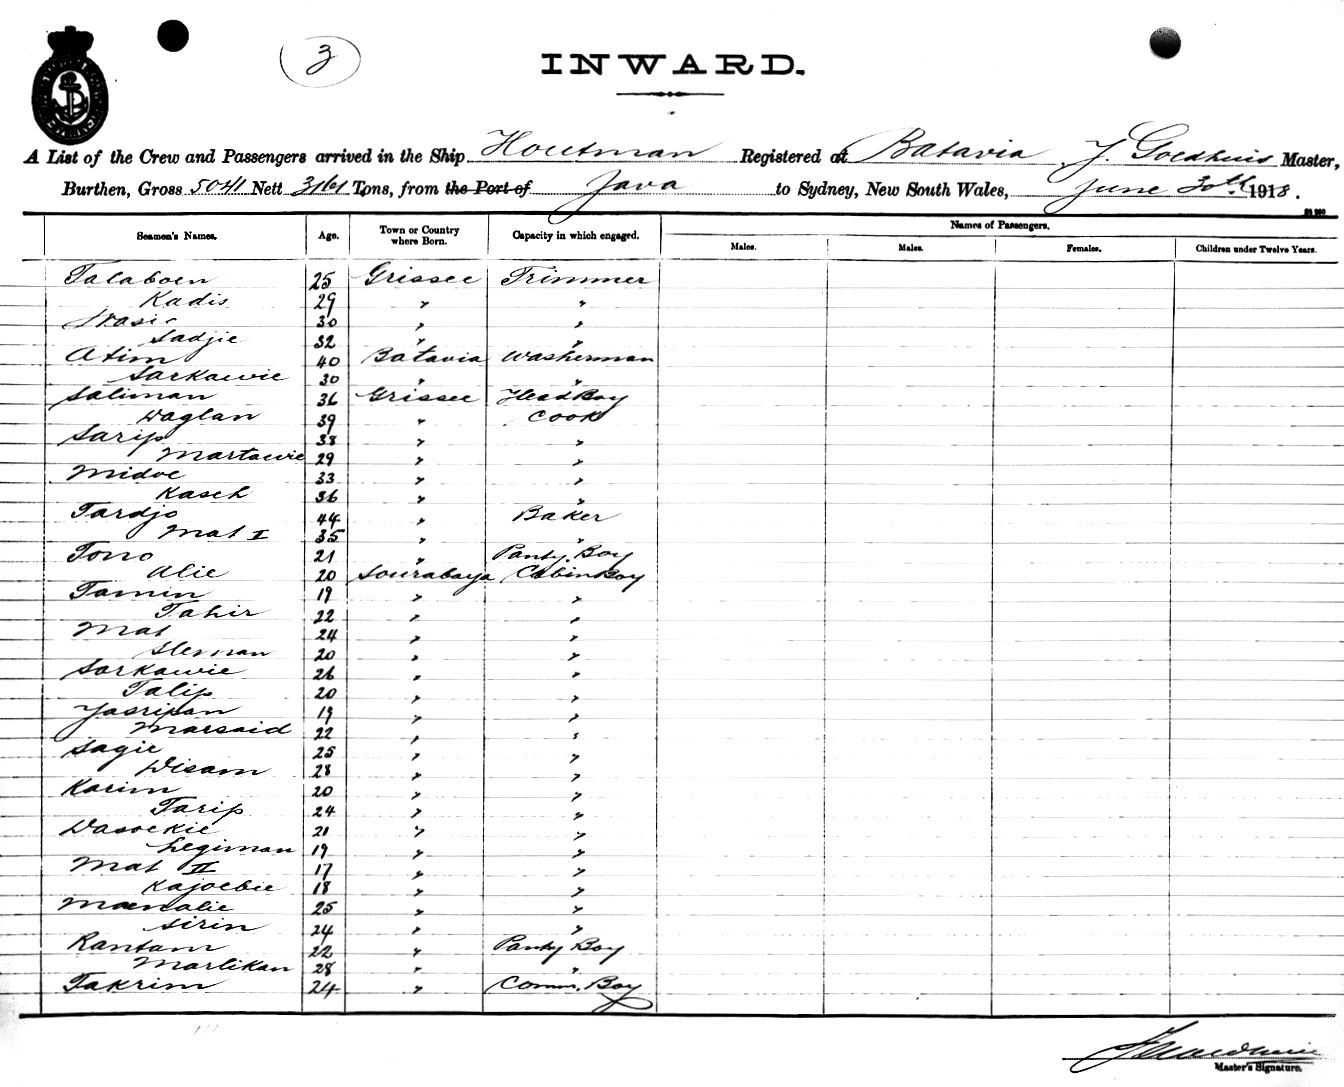 3
INWARD.
A List of the Crew and Passengers arrived in the Ship Houtman Registered at Batavia J. Goedhuis Master,
Burthen, Gross 5041 Nett 3161 Tons, from the Port of Java to Sydney, New South Wales, June 30th 1918.
Names of Passengers.
Seamen's Names. Age. Town or Country where Born. Capacity in which engaged. Males. Males. Females. Children under Twelve Years.
Talaboen 25 Grissee Trimmer
Kadis 29 " "
Wasie 30 " "
Sadjie 32 " "
Atim 40 Batavia Washerman
Sarkawie 30 " "
Saliman 36 Grissee Head Boy
Waglan 39 " Cook
Sarip 38 " "
Martawie 29 " "
Midoe 33 " "
Kaseh 36 " "
Tardjo 44 " Baker
Mat I 35 " "
Tono 21 " Pantry Boy
Alie 20 Sourabaya Cabin Boy
Tamin 19 " "
Tahir 22 " "
Mat 24 " "
Sleman 20 " "
Sarkawie 26 " "
Talip 20 " "
Jasripan 19 " "
Marsaid 22 " "
Sagie 25 " "
Wisam 28 " "
Karim 20 " "
Tarip 24 " "
Wasoekie 21 " "
Legiman 19 " "
Mat II 17 " "
Kajoebie 18 " "
Maenalie 25 " "
Sirin 24 " "
Rantam 22 " Pantry Boy
Marlikan 28 " "
Takrim 24 " Comm. Boy
Master's Signature.